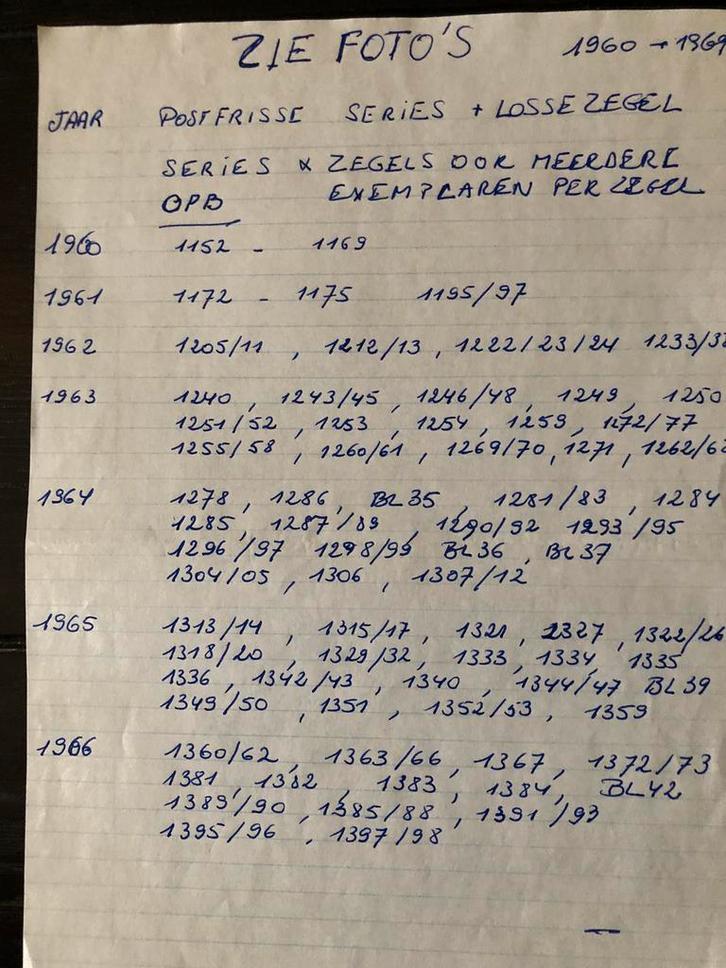 ZIE FOTO'S 1960 → 1969
JAAR POSTFRISSE SERIES + LOSSE ZEGEL
SERIES & ZEGELS OOK MEERDERE
OPB EXEMPLAREN PER ZEGEL
1960 1152 - 1169
1961 1172 - 1175 1195/97
1962 1205/11 , 1212/13 , 1222/23/24
1963 1240 , 1243/45 , 1246/48 , 1249 , 1250
1251/52 , 1253 , 1254 , 1259 , 1272/77
1255/58 , 1260/61 , 1269/70 , 1271 ,
1964 1278 , 1286 , BL35 , 1281/83 , 1284
1285 , 1287/89 , 1290/92 1293/95
1296/97 1298/99 BL36 , BL37
1304/05 , 1306 , 1307/12
1965 1313/14 , 1315/17 , 1321 , 2327 , 1322/26
1318/20 , 1329/32 , 1333 , 1334 , 1335
1336 , 1342/43 , 1340 , 1344/47 BL39
1349/50 , 1351 , 1352/53 , 1359
1966 1360/62 , 1363/66 , 1367 , 1372/73
1381 , 1382 , 1383 , 1384 , BL42
1389/90 , 1385/88 , 1391/93
1395/96 , 1397/98